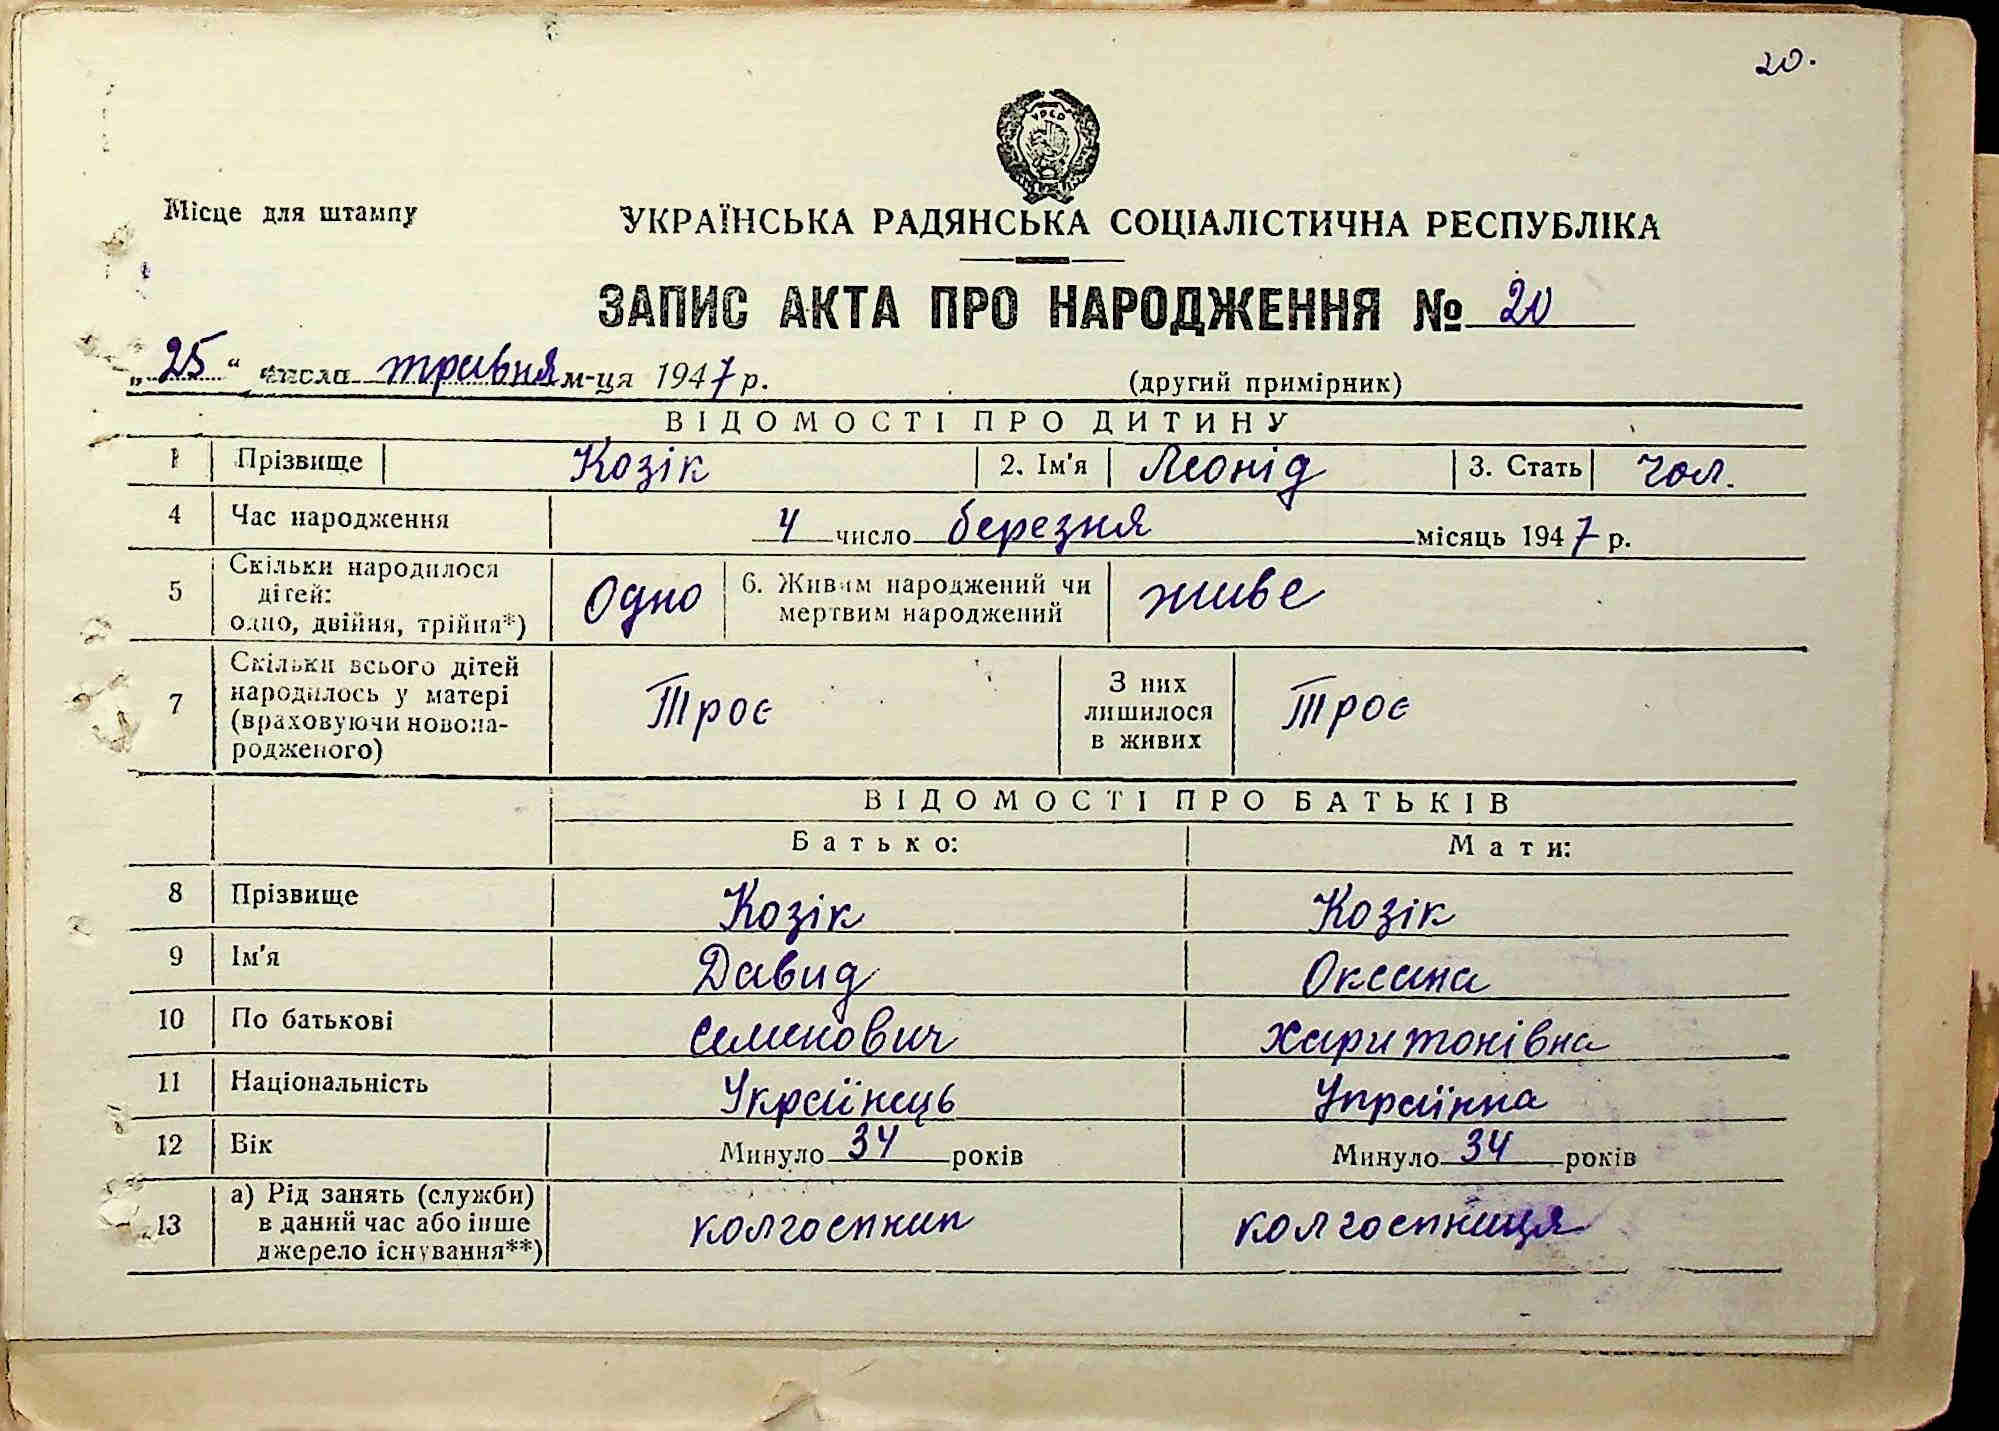 20.
УРСР
Місце для штампу
УКРАЇНСЬКА РАДЯНСЬКА СОЦІАЛІСТИЧНА РЕСПУБЛІКА
ЗАПИС АКТА ПРО НАРОДЖЕННЯ № 20
„25“ числа травня м-ця 1947 р. (другий примірник)
ВІДОМОСТІ ПРО ДИТИНУ
1 Прізвище Козік 2. Ім'я Леонід 3. Стать чол.
4 Час народження 4 число березня місяць 1947 р.
5 Скільки народилося дітей: одно, двійня, трійня*) Одно 6. Живим народжений чи мертвим народжений живе
7 Скільки всього дітей народилось у матері (враховуючи новона-родженого) Троє З них лишилося в живих Троє
ВІДОМОСТІ ПРО БАТЬКІВ
Батько: Мати:
8 Прізвище Козік Козік
9 Ім'я Давид Оксана
10 По батькові Семенович Харитонівна
11 Національність Українець Українка
12 Вік Минуло 34 років Минуло 34 років
13 а) Рід занять (служби) в даний час або інше джерело існування**) колгоспник колгоспниця